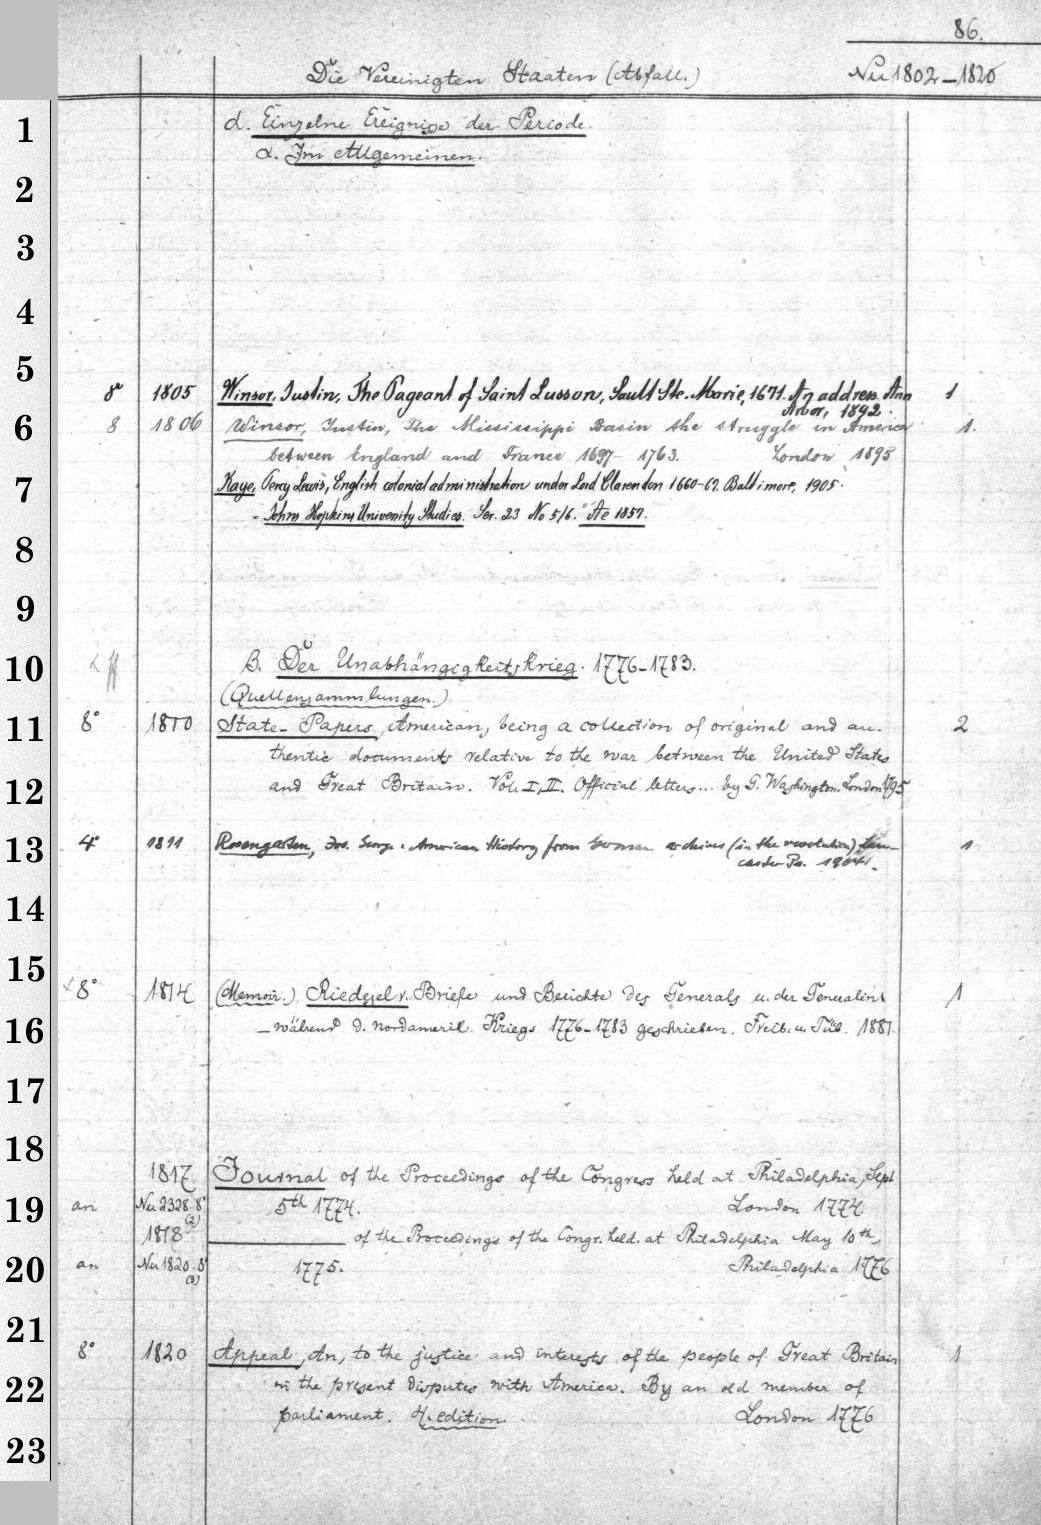 86.
Die Vereinigten Staaten (Abfall.) Nu 1802–1820
1
d. Einzelne Ereignisse der Periode.
α. Im Allgemeinen.
2
3
4
5
8° 1805 Winsor, Justin, The Pageant of Saint Lusson, Sault Ste. Marie, 1671. An address. Ann 1
Arbor, 1892.
6
8 1806 Winsor, Justin, The Mississippi Basin the struggle in America 1.
between England and France 1697–1763. London 1895
7
Kaye, Percy Lewis, English colonial administration under Lord Clarendon 1660–67. Baltimore, 1905.
= Johns Hopkins University Studies. Ser. 23 No 5/6. Ae 1857.
8
9
10
β. Der Unabhängigkeitskrieg. 1776–1783.
(Quellensammlungen.)
11
8° 1810 State-Papers, American, being a collection of original and au- 2
thentic documents relative to the war between the United States
12
and Great Britain. Vol. I, II. Official letters... by G. Washington. London 1795
13
4° 1811 Rosengarten, Jos. George: American History from German archives (in the revolution) Lan- 1
caster Pa. 1904.
14
15
8° 1814 (Memoir.) Riedesel v. Briefe und Berichte des Generals u. der Generalin 1
16
– während d. nordamerik. Kriegs 1776–1783 geschrieben. Freib. u. Tüb. 1881
17
18
1817 Journal of the Proceedings of the Congress held at Philadelphia, Sept
19
an Nu 2328 8° (2) 5th 1774. London 1774
1818 ——— of the Proceedings of the Congr. held at Philadelphia May 10th,
20
an Nu 1820. 8° (3) 1775. Philadelphia 1776
21
8° 1820 Appeal, An, to the justice and interests of the people of Great Britain 1
22
in the present disputes with America. By an old member of
parliament. 4. edition. London 1776
23